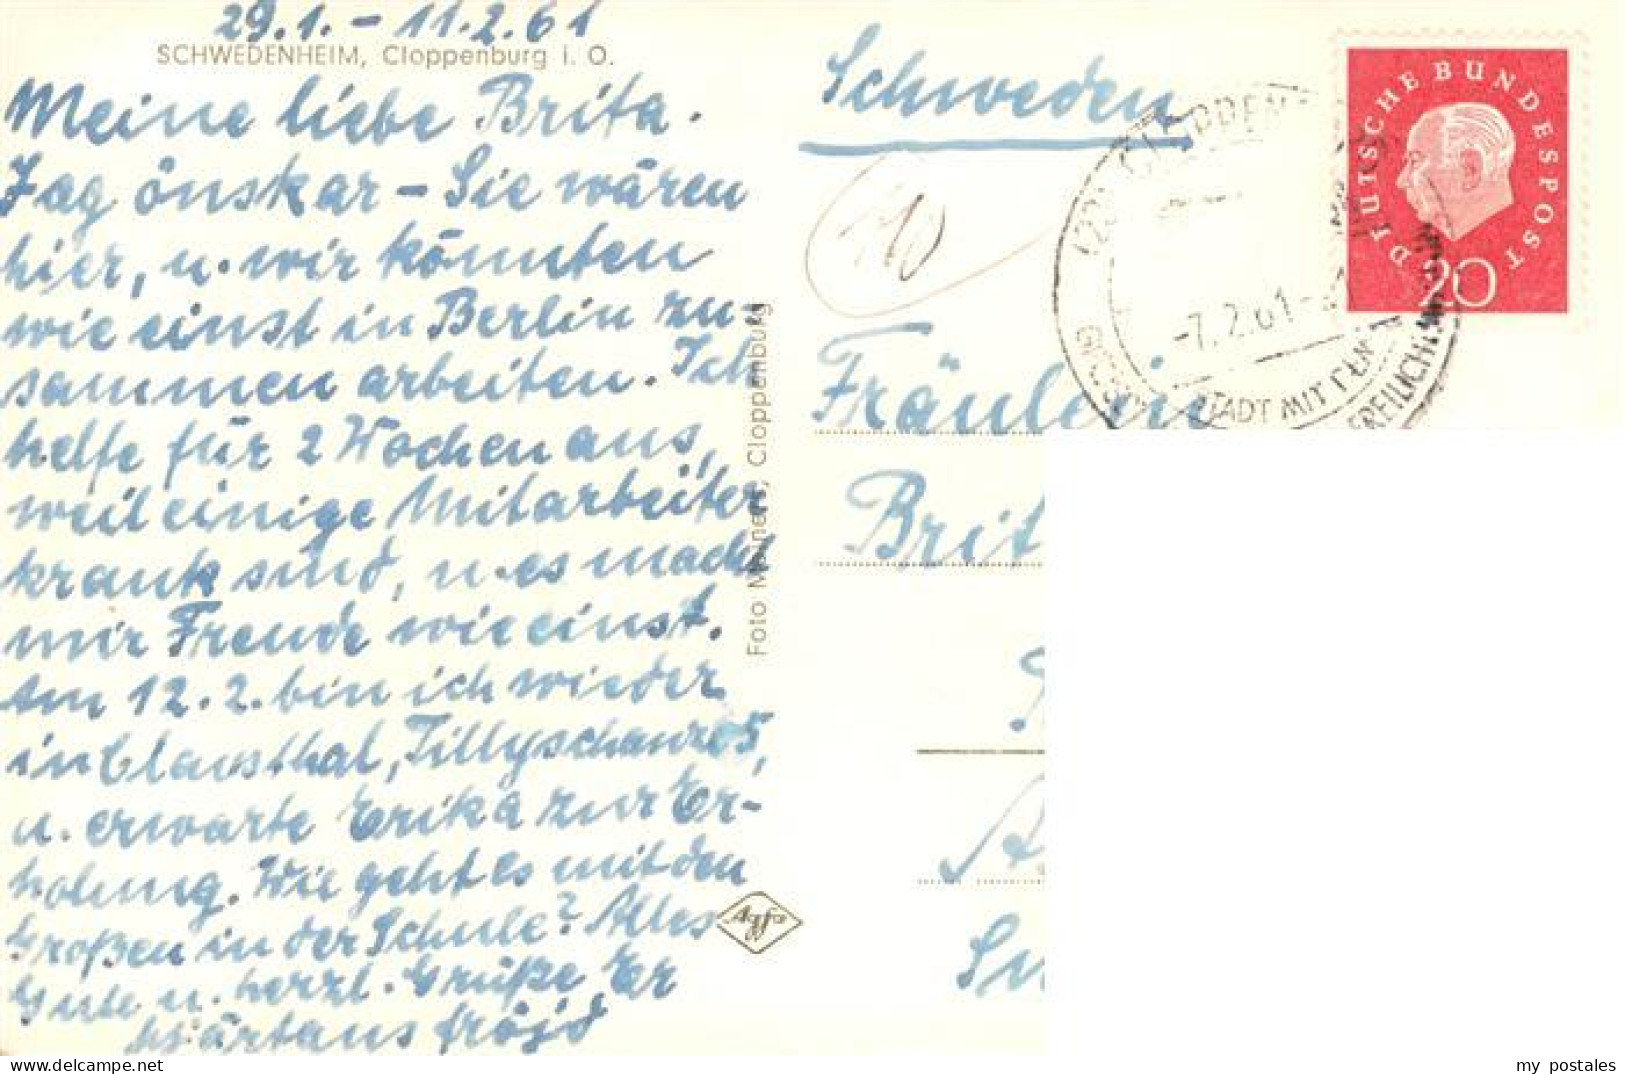 29.1. - 11.2.61
SCHWEDENHEIM, Cloppenburg i. O.
Meine liebe Brita.
Jag önskar – Sie wären
hier, u. wir könnten
wie einst in Berlin zu-
sammen arbeiten. Ich
helfe für 2 Wochen aus,
weil einige Mitarbeiter
krank sind, u. es macht
mir Freude wie einst.
Am 12.2. bin ich wieder
in Clausthal, Tillyschanze 5,
u. erwarte Erika zur Er-
holung. Wie geht es mit den
Großen in der Schule? Alles
Gute u. herzl. Grüße Er
Foto Meiners, Cloppenburg
Agfa
Schweden
DEUTSCHE BUNDESPOST
20
-7.2.61
STADT MIT
FREILICHT
Fräulein
Brit
delcampe.net
my_postales